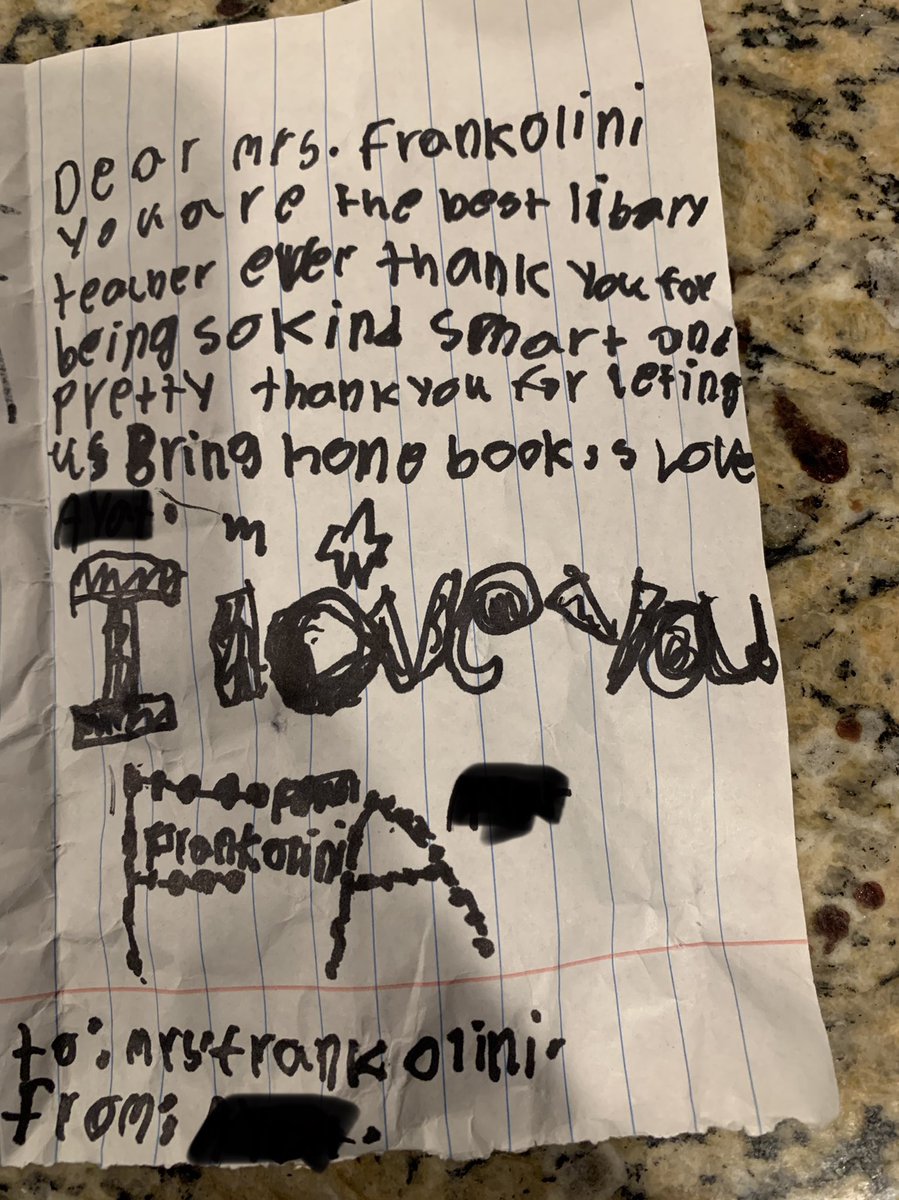 Dear mrs. Frankolini
you are the best libary
teacher ever thank you for
being so kind smart and
pretty thank you for leting
us Bring home books love
m
I love you
F A
Frankolini
to: mrs frankolini.
from: